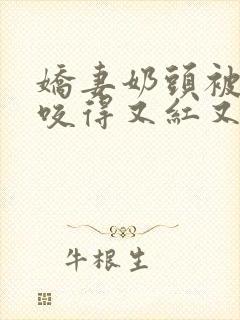 嬌妻奶頭被
咬得又紅又
牛根生